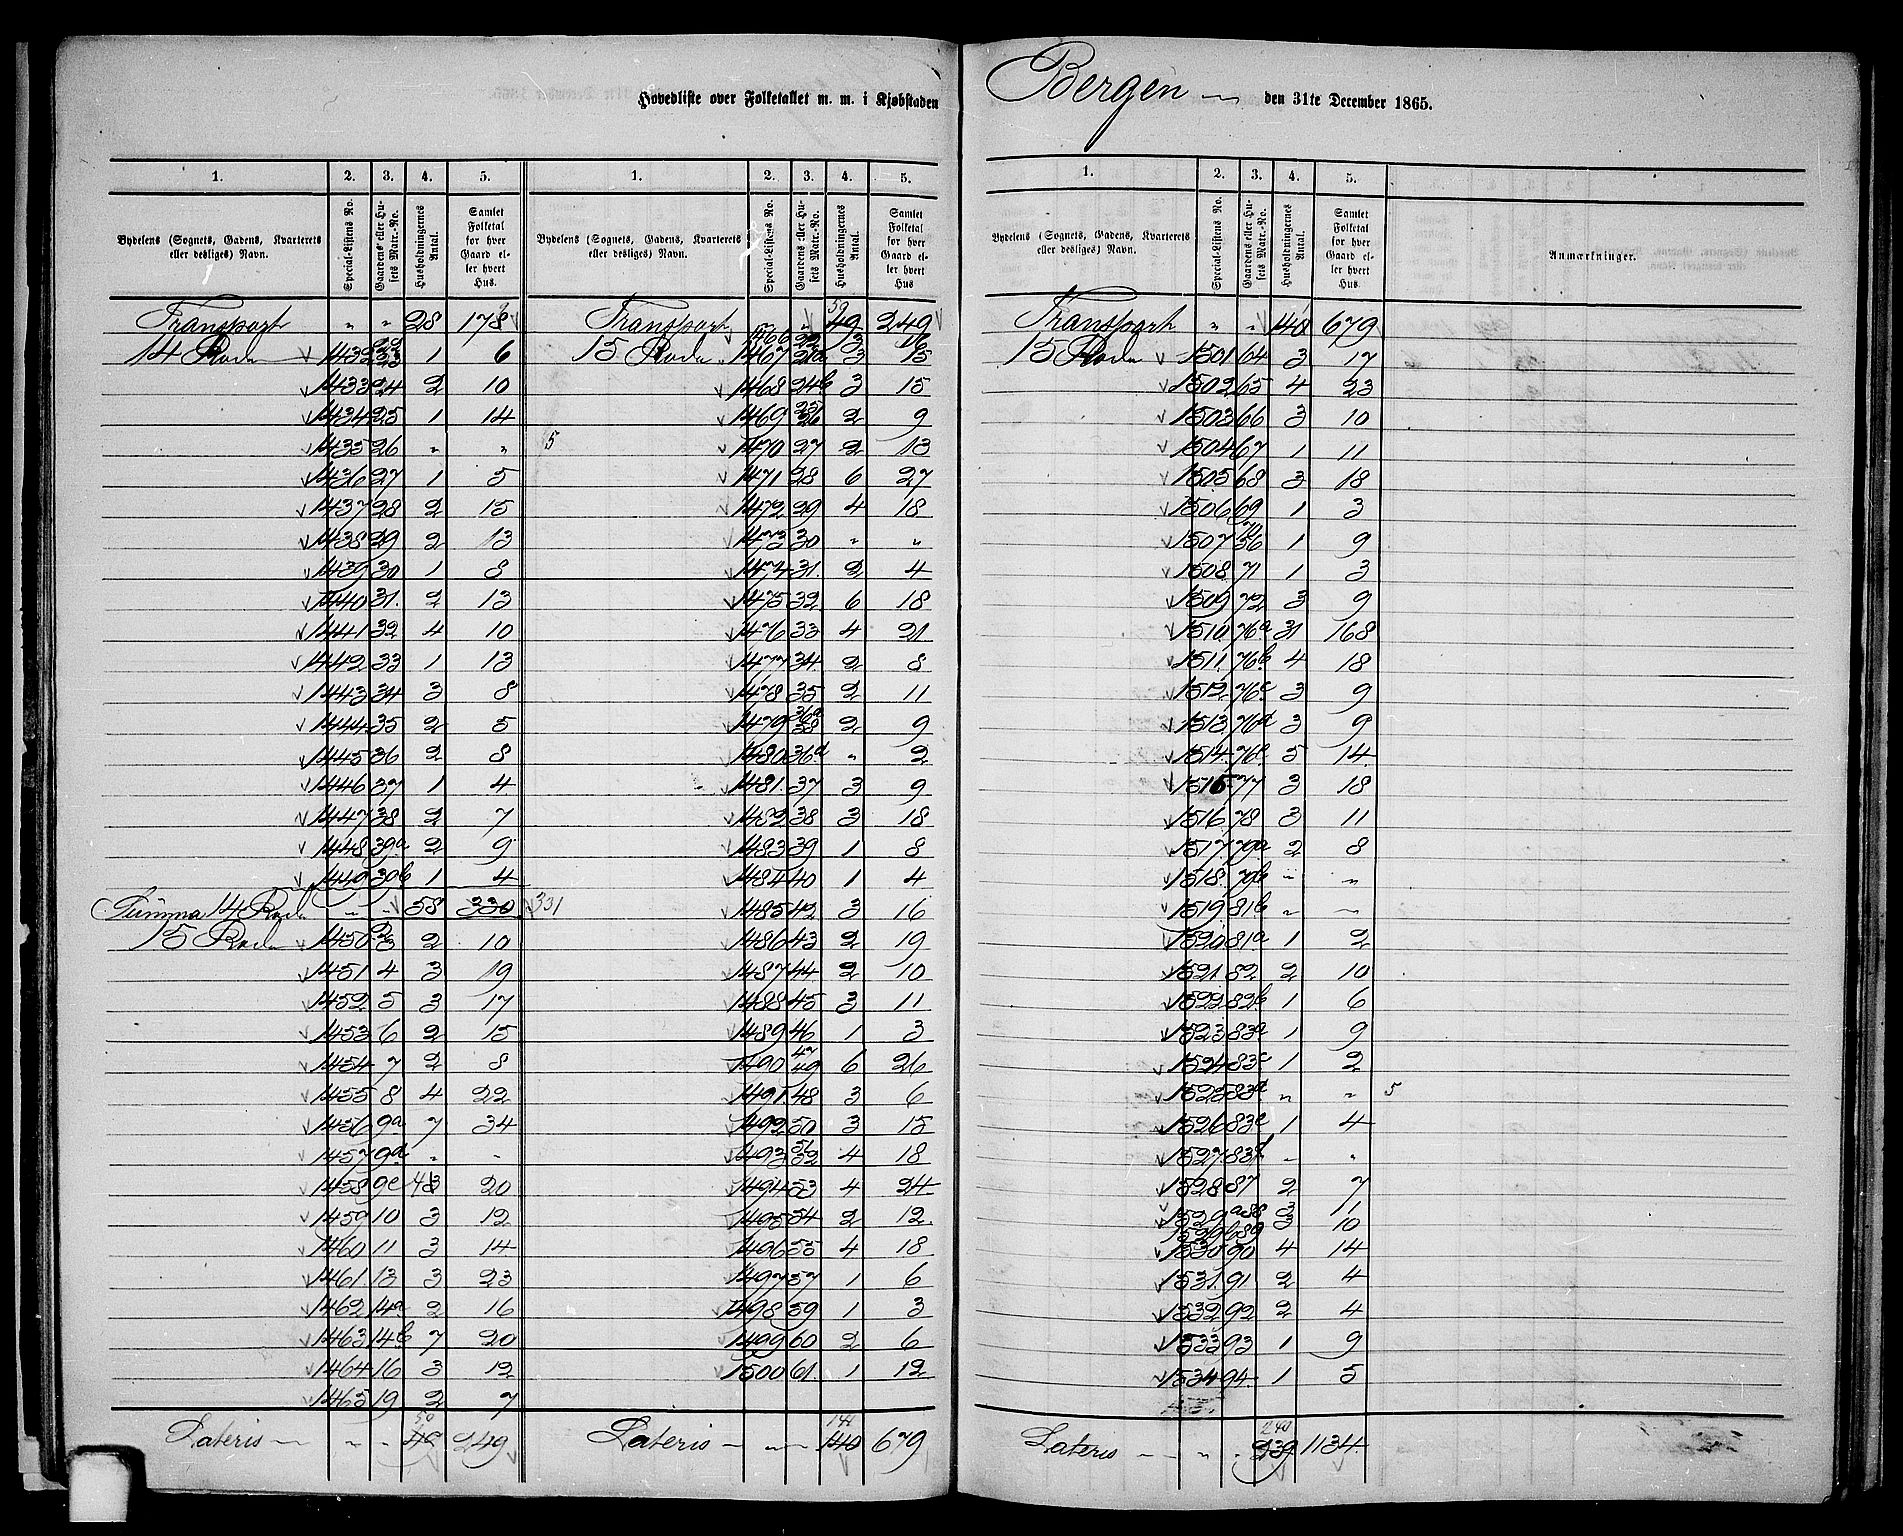 Hovedliste over Folketallet m. m. i Kjøbstaden Bergen den 31te December 1865.
1. 2. 3. 4. 5.
Bydelens (Sognets, Gadens, Kvarterets eller desliges) Navn. Special-Listens No. Gaardens eller Husets Matr.-No. Husholdningernes Antal. Samlet Folketal for hver Gaard eller hvert Hus.
Transport " " 28 178
14 Rode 1432 22 23 1 6
1433 24 2 10
1434 25 1 14
1435 26 " " 5
1436 27 1 5
1437 28 2 15
1438 29 2 13
1439 30 1 8
1440 31. 2 13
1441 32 4 10
1442 33 1 13
1443 34 3 8
1444 35 2 5
1445 36 2 8
1446 37 1 4
1447 38 2 7
1448 39a 2 9
1449 39b 1 4
Summa 14 Rode " " 58 330 331
15 Rode 1450 2 3 2 10
1451 4 3 19
1452 5 3 17
1453 6 2 15
1454 7 2 8
1455 8 4 22
1456 9a 7 34
1457 9d " "
1458 9c 43 20
1459 10 3 12
1460 11 3 14
1461 13 3 23
1462 14a 2 16
1463 14b 7 20
1464 16 3 12
1465 19 2 7
Lateris " " 50 49 249
1. 2. 3. 4. 5.
Bydelens (Sognets, Gadens, Kvarterets eller desliges) Navn. Special-Listens No. Gaardens eller Husets Matr.-No. Husholdningernes Antal. Samlet Folketal for hver Gaard eller hvert Hus
Transport " " 50 49 249
1466 22 3 16
15 Rode 1467 24a 3 15
1468 24b 3 15
1469 25 26 2 9
1470 27 2 13
1471 28 6 27
1472 29 4 18
1473 30 " "
1474 31. 2 4
1475 32 6 18
1476 33 4 21
1477 34 2 8
1478 35 2 11
1479 36a 58 2 9
1480 36d " 2
1481. 37 3 9
1482 38 3 18
1483 39 1 8
1484 40 1 4
1485 42 3 16
1486 43 2 19
1487 44 2 10
1488 45 3 11
1489 46 1 3
1490 47 49 6 26
1491 48 3 6
1492 50 3 15
1493 51 52 4 18
1494 53 4 24
1495 54 2 12
1496 55 4 18
1497 57 1 6
1498 59 1 3
1499 60 2 6
1500 61. 1 12
Lateris " " 141 140 679
1. 2. 3. 4. 5.
Bydelens (Sognets, Gadens, Kvarterets eller desliges) Navn. Special-Listens No. Gaardens eller Husets Matr.-No. Husholdningernes Antal. Samlet Folketal for hver Gaard eller hvert Hus. Anmærkninger.
Transport " " 140 679
15 Rode 1501 64 3 17
1502 65 4 23
1503 66 3 10
1504 67 1 11
1505 68 3 18
1506 69 1 3
1507 70 56 1 9
1508. 71 1 3
1509 72 3 9
1510. 76a 31 168
1511. 76b 4 18
1512. 76c 3 9
1513. 76d 3 9
1514. 76e 5 14
1515 77 3 18
1516 78 3 11
1517 79a 2 8
1518. 79b " "
1519. 81b " "
1520 81a 1 2
1521 82 2 10
1522. 82b 1 6
1523 83a 1 9
1524 83c 1 2
1525 83d " " 5
1526 83e 1 4
1527. 83f " "
1528 87 2 7
1529a 88 3 11
1529b 89 3 10
1530. 90 4 14
1531. 91 2 4
1532 92 2 4
1533 93 1 9
1534 94. 1 5
Lateris " " 240 239 1134